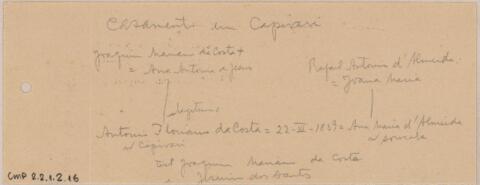 Casamento em Capivari
Joaquim Mariano da Costa +
= Ana Antonia de Jesus
Rafael Antonio d'Almeida
= Joana Maria
legitimo
Antonio Floriano da Costa = 22-VI-1829 = Ana Maria d'Almeida
n/ Capivari
n/ Sorocaba
Test Joaquim Mariano da Costa
e dos Santos
CMP 2.2.1.2.16